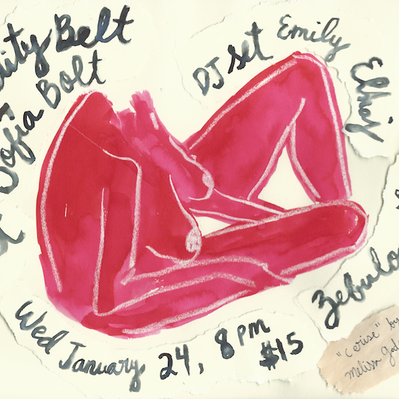 Belt
Sofia Bolt
DJ set Emily
Elhaj
Zebulo
Wed January 24, 8 pm
$15
"cerise"